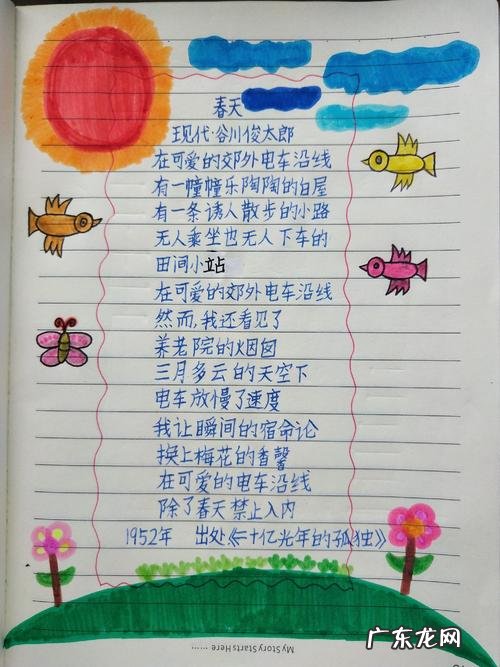 春天
现代·谷川俊太郎
在可爱的郊外电车沿线
有一幢幢乐陶陶的白屋
有一条诱人散步的小路
无人乘坐也无人下车的
田间小站
在可爱的郊外电车沿线
然而,我还看见了
养老院的烟囱
三月多云的天空下
电车放慢了速度
我让瞬间的宿命论
换上梅花的香馨
在可爱的电车沿线
除了春天禁止入内
1952年 出处《二十亿光年的孤独》
My Story Starts Here ......
广东龙网